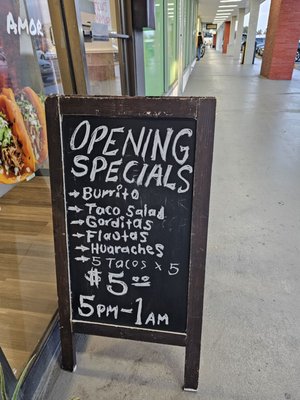 AMOR
OPENING
SPECIALS
→Burrito
→Taco Salad
→Gorditas
→Flautas
→Huaraches
→5 Tacos x 5
$5.00
5PM-1AM